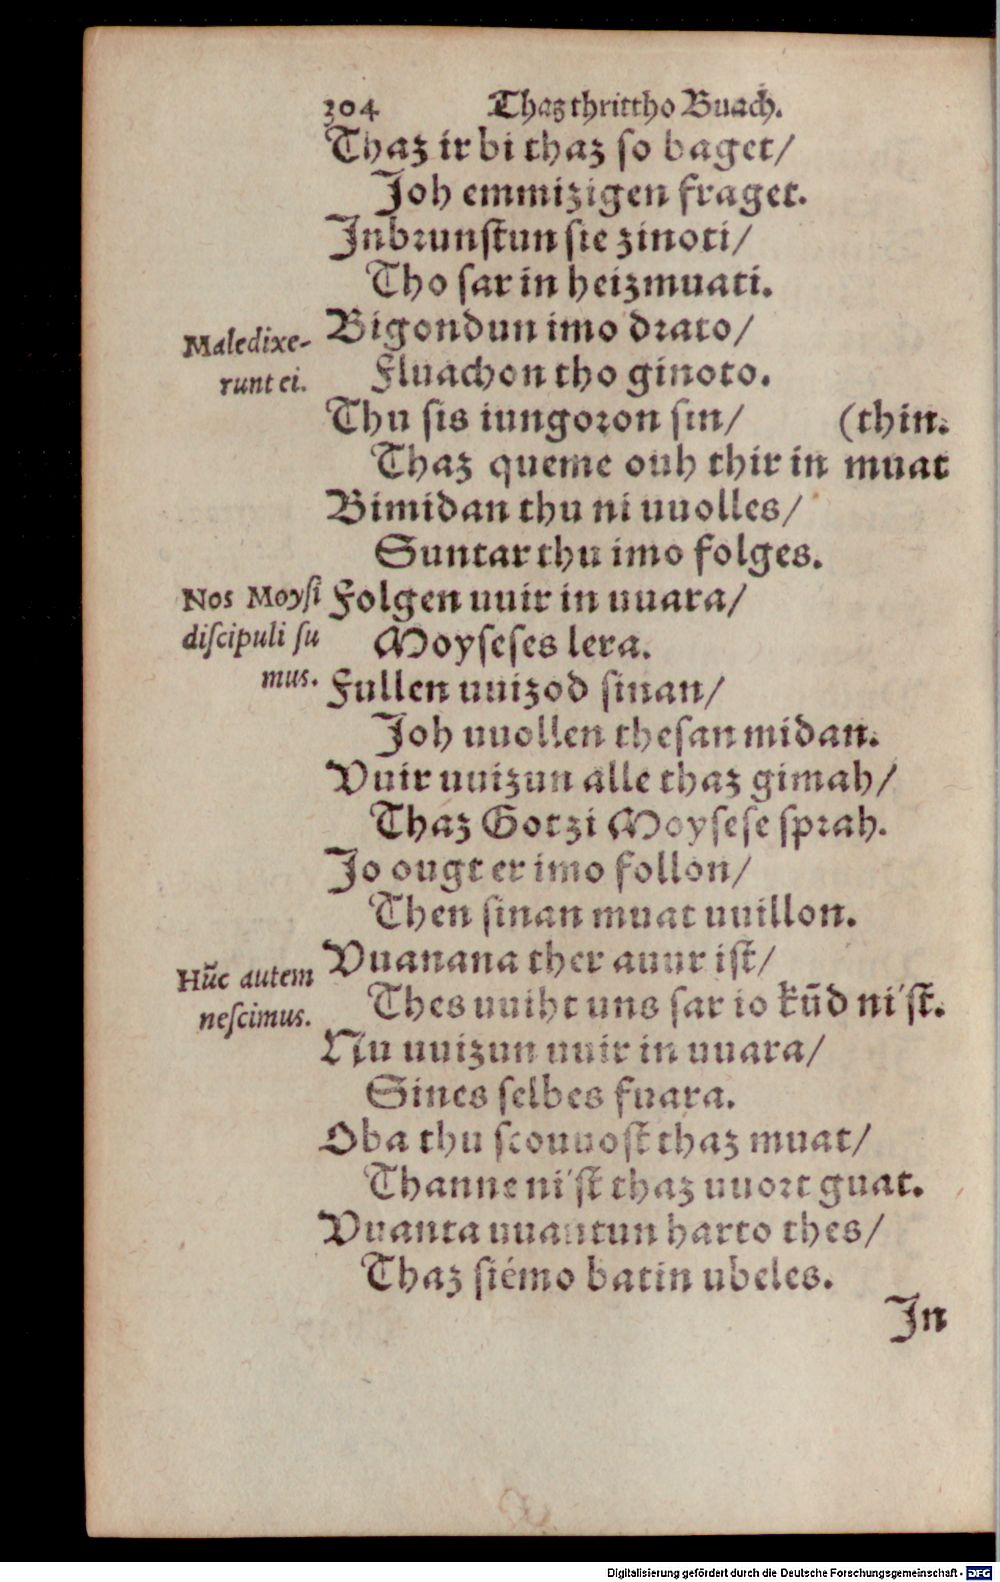 304 Thaz thrittho Buach.
Thaz ir bi thaz so baget/
Joh emmizigen fraget.
Inbrunſtun ſie zinoti/
Tho ſar in heizmuati.
Maledixe-
runt ei.
Bigondun imo drato/
Fluachon tho ginoto.
Thu ſis iungoron ſin/ (thin.
Thaz queme ouh thir in muat
Bimidan thu ni uuolles/
Suntar thu imo folges.
Nos Moyſi
diſcipuli ſu
mus.
Folgen uuir in uuara/
Moyſeſes lera.
Fullen uuizod ſinan/
Joh uuollen theſan midan.
Vuir uuizun alle thaz gimah/
Thaz Got zi Moyſeſe ſprah.
Jo ougt er imo follon/
Then ſinan muat uuillon.
Hūc autem
neſcimus.
Vuanana ther auur iſt/
Thes uuiht uns ſar io kūd ni'ſt.
Nu uuizun uuir in uuara/
Sines ſelbes fuara.
Oba thu ſcouuoſt thaz muat/
Thanne ni'ſt thaz uuort guat.
Vuanta uuantun harto thes/
Thaz ſiémo batin ubeles.
In
Digitalisierung gefördert durch die Deutsche Forschungsgemeinschaft - DFG